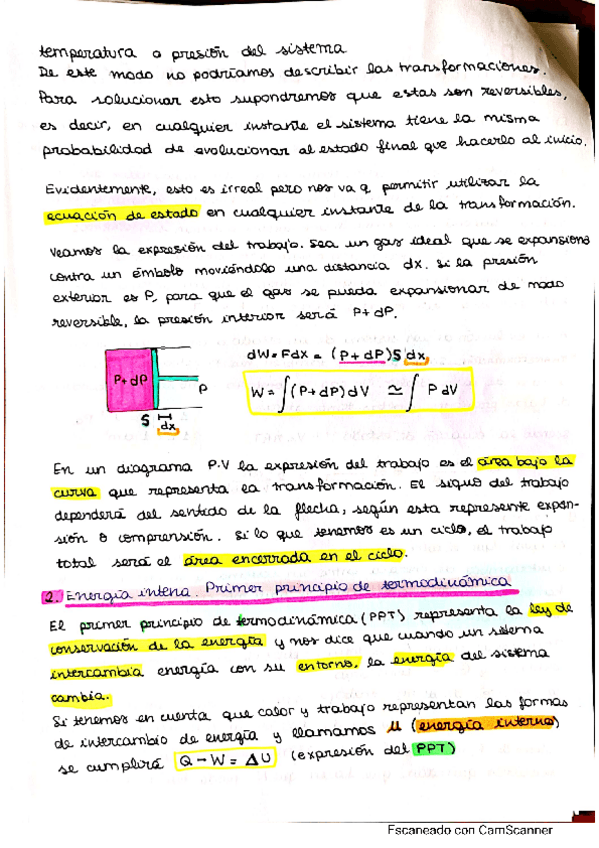 temperatura o presión del sistema
De este modo no podríamos describir las transformaciones.
Para solucionar esto supondremos que estas son reversibles,
es decir, en cualquier instante el sistema tiene la misma
probabilidad de evolucionar al estado final que hacerlo al inicio.
Evidentemente, esto es irreal pero nos va a permitir utilizar la
ecuación de estado en cualquier instante de la transformación.
Veamos la expresión del trabajo. Sea un gas ideal que se expansiona
contra un émbolo moviéndolo una distancia dx. Si la presión
exterior es P, para que el gas se pueda expansionar de modo
reversible, la presión interior será P+dP.
dW = Fdx = (P+dP)S dx
P+dP
P
W = ∫(P+dP)dV ≃ ∫ P dV
S
dx
En un diagrama P.V la expresión del trabajo es el área bajo la
curva que representa la transformación. El signo del trabajo
dependerá del sentido de la flecha, según esta represente expan-
sión o comprensión. Si lo que tenemos es un ciclo, el trabajo
total será el área encerrada en el ciclo.
2. Energía interna. Primer principio de termodinámica
El primer principio de termodinámica (PPT) representa la ley de
conservación de la energía y nos dice que cuando un sistema
intercambia energía con su entorno, la energía del sistema
cambia.
Si tenemos en cuenta que calor y trabajo representan las formas
de intercambio de energía y llamamos U (energía interna)
se cumplirá Q - W = ΔU (expresión del PPT)
Escaneado con CamScanner